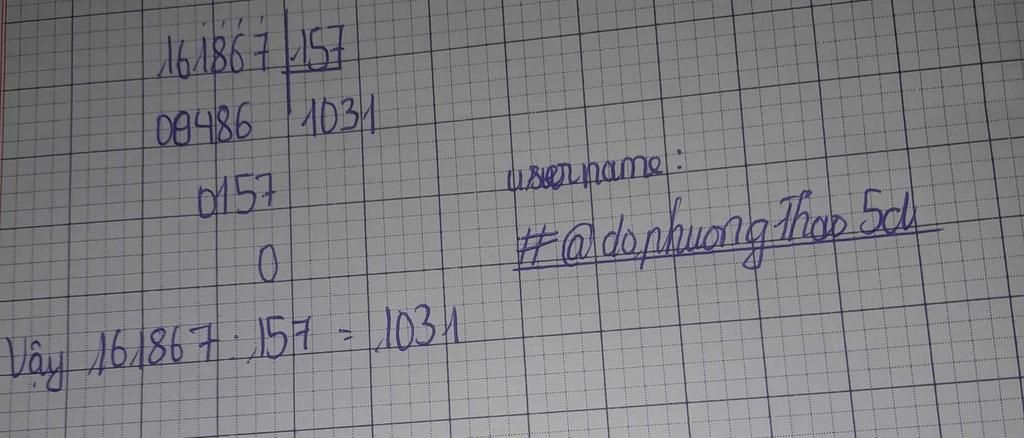 161867 157
00486 1031
0157
0
username:
#@dophuongThao5c4
Vậy 161867 : 157 = 1031